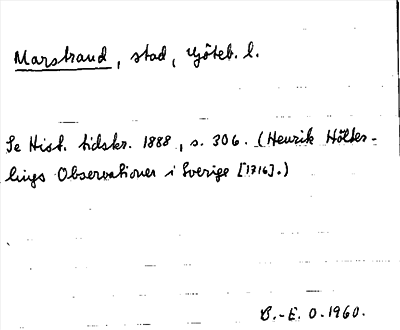 Marstrand, stad, Göteb. l.
Se Hist. tidskr. 1888, s. 306. (Henrik Hölter-
lings Observationer i Sverige [1716].)
B.-E. O. 1960.